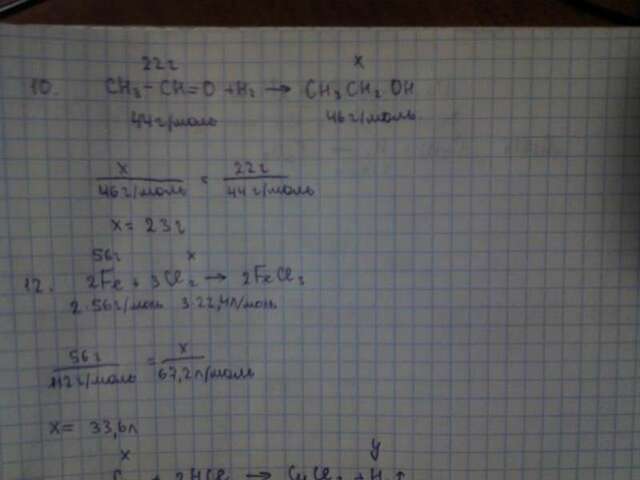 22г x
10. CH₃-CH=O +H₂ → CH₃CH₂OH
44г/моль 46г/моль
x/46г/моль = 22г/44г/моль
x= 23г
56г x
12. 2Fe + 3Cl₂ → 2FeCl₃
2·56г/моль 3·22,4л/моль
56г/112г/моль = x/67,2л/моль
x= 33,6л
x y
+ 2HCl → + H₂↑